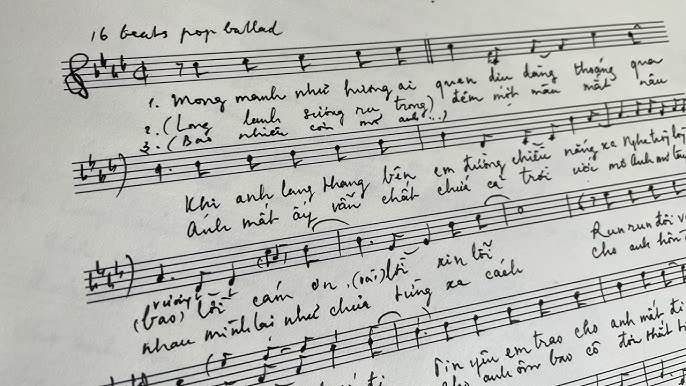 16 beats pop ballad
1. Mong manh như hương ai quen dịu dàng thoáng qua
2. (Long lanh sương ru trong) đêm một màu mắt nâu
3. (Bao nhiêu còn mơ anh...)
Khi anh lang thang bên em đường chiều nắng xa Nghe
Ánh mắt ấy vẫn chất chứa cả trời ước mơ Anh mơ
(vương)
(bao) lỗi cám ơn (vài) lỗi xin lỗi Run run đôi
nhau mình lại như chưa từng xa cách cho anh hôn
Tin yêu em trao cho anh mất đi
cho anh ôm bao cô đơn